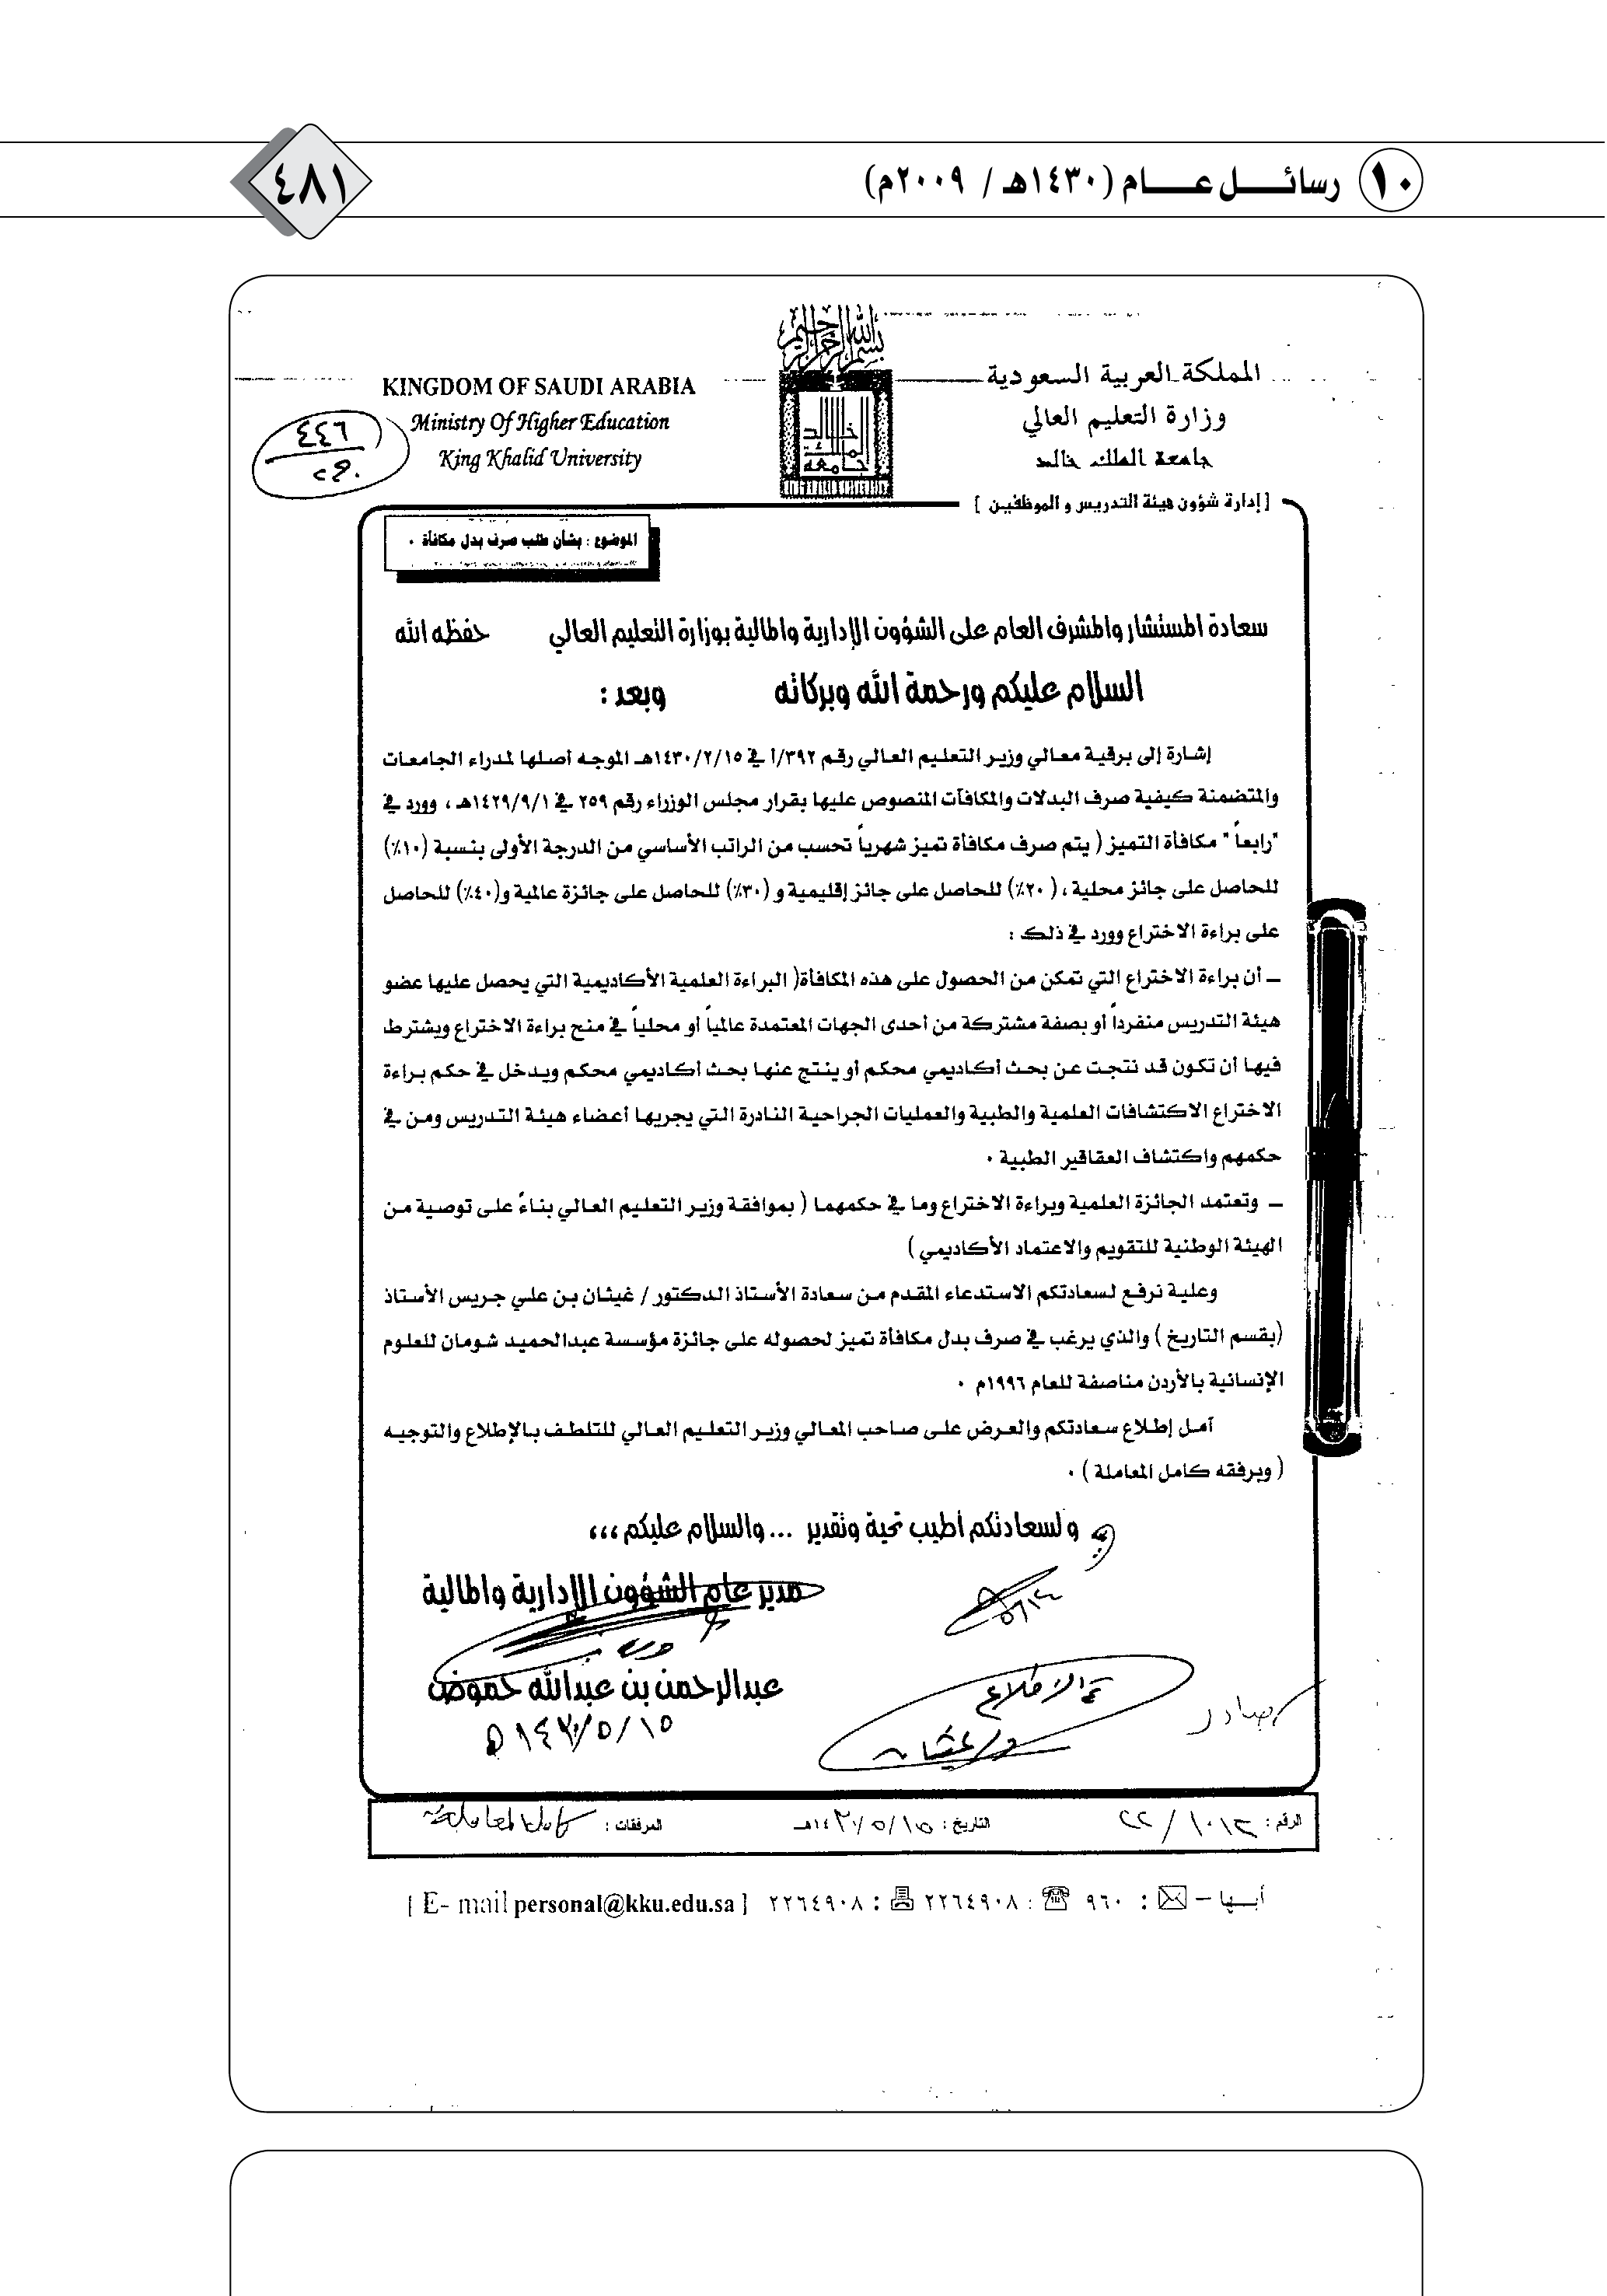 ١٠ رسائــل عــام (١٤٣٠هـ / ٢٠٠٩م)
٤٨١
بسم الله الرحمن الرحيم
المملكة العربية السعودية
وزارة التعليم العالي
جامعة الملك خالد
KINGDOM OF SAUDI ARABIA
Ministry Of Higher Education
King Khalid University
جامعة الملك خالد
٤٤٦
[ إدارة شؤون هيئة التدريس و الموظفين ]
الموضوع : بشأن طلب صرف بدل مكافأة ٠
سعادة المستشار والمشرف العام على الشؤون الإدارية والمالية بوزارة التعليم العالي حفظه الله
السلام عليكم ورحمة الله وبركاته وبعد :
إشارة إلى برقية معالي وزير التعليم العالي رقم ٣٩٢/أ في ١٤٣٠/٢/١٥هـ الموجه أصلها لمدراء الجامعات
والمتضمنة كيفية صرف البدلات والمكافآت المنصوص عليها بقرار مجلس الوزراء رقم ٢٥٩ في ١٤٢٩/٩/١هـ ، وورد في
"رابعاً " مكافأة التميز ( يتم صرف مكافأة تميز شهرياً تحسب من الراتب الأساسي من الدرجة الأولى بنسبة (١٠٪)
للحاصل على جائز محلية ، ( ٢٠٪) للحاصل على جائز إقليمية و (٣٠٪) للحاصل على جائزة عالمية و(٤٠٪) للحاصل
على براءة الاختراع وورد في ذلك :
ـ أن براءة الاختراع التي تمكن من الحصول على هذه المكافأة( البراءة العلمية الأكاديمية التي يحصل عليها عضو
هيئة التدريس منفرداً أو بصفة مشتركة من أحدى الجهات المعتمدة عالمياً أو محلياً في منح براءة الاختراع ويشترط
فيها أن تكون قد نتجت عن بحث أكاديمي محكم أو ينتج عنها بحث أكاديمي محكم ويدخل في حكم براءة
الاختراع الاكتشافات العلمية والطبية والعمليات الجراحية النادرة التي يجريها أعضاء هيئة التدريس ومن في
حكمهم واكتشاف العقاقير الطبية ٠
ـ وتعتمد الجائزة العلمية وبراءة الاختراع وما في حكمهما ( بموافقة وزير التعليم العالي بناءً على توصية من
الهيئة الوطنية للتقويم والاعتماد الأكاديمي )
وعلية نرفع لسعادتكم الاستدعاء المقدم من سعادة الأستاذ الدكتور / غيثان بن علي جريس الأستاذ
(بقسم التاريخ ) والذي يرغب في صرف بدل مكافأة تميز لحصوله على جائزة مؤسسة عبدالحميد شومان للعلوم
الإنسانية بالأردن مناصفة للعام ١٩٩٦م ٠
آمل إطلاع سعادتكم والعرض على صاحب المعالي وزير التعليم العالي للتلطف بالإطلاع والتوجيه
( وبرفقه كامل المعاملة ) ٠
ولسعادتكم أطيب تحية وتقدير ... والسلام عليكم ،،،
مدير عام الشؤون الإدارية والمالية
عبدالرحمن بن عبدالله حموض
١٤٣٠/٥/١٥هـ
تم الاطلاع
صادر
الرقم : ١٠١٢ / ٢٢ التاريخ : ١٤٣٠/٥/١٥هـ المرفقات : كامل المعاملة
أبـــها – : ٩٦٠ : ٢٢٦٤٩٠٨ : ٢٢٦٤٩٠٨ [ E- mail personal@kku.edu.sa ]